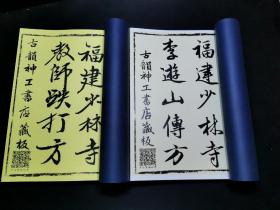 福建少林寺
李遊山傳方
古韻神工書店藏板
福建少林寺
教師跌打方
古韻神工書店藏板